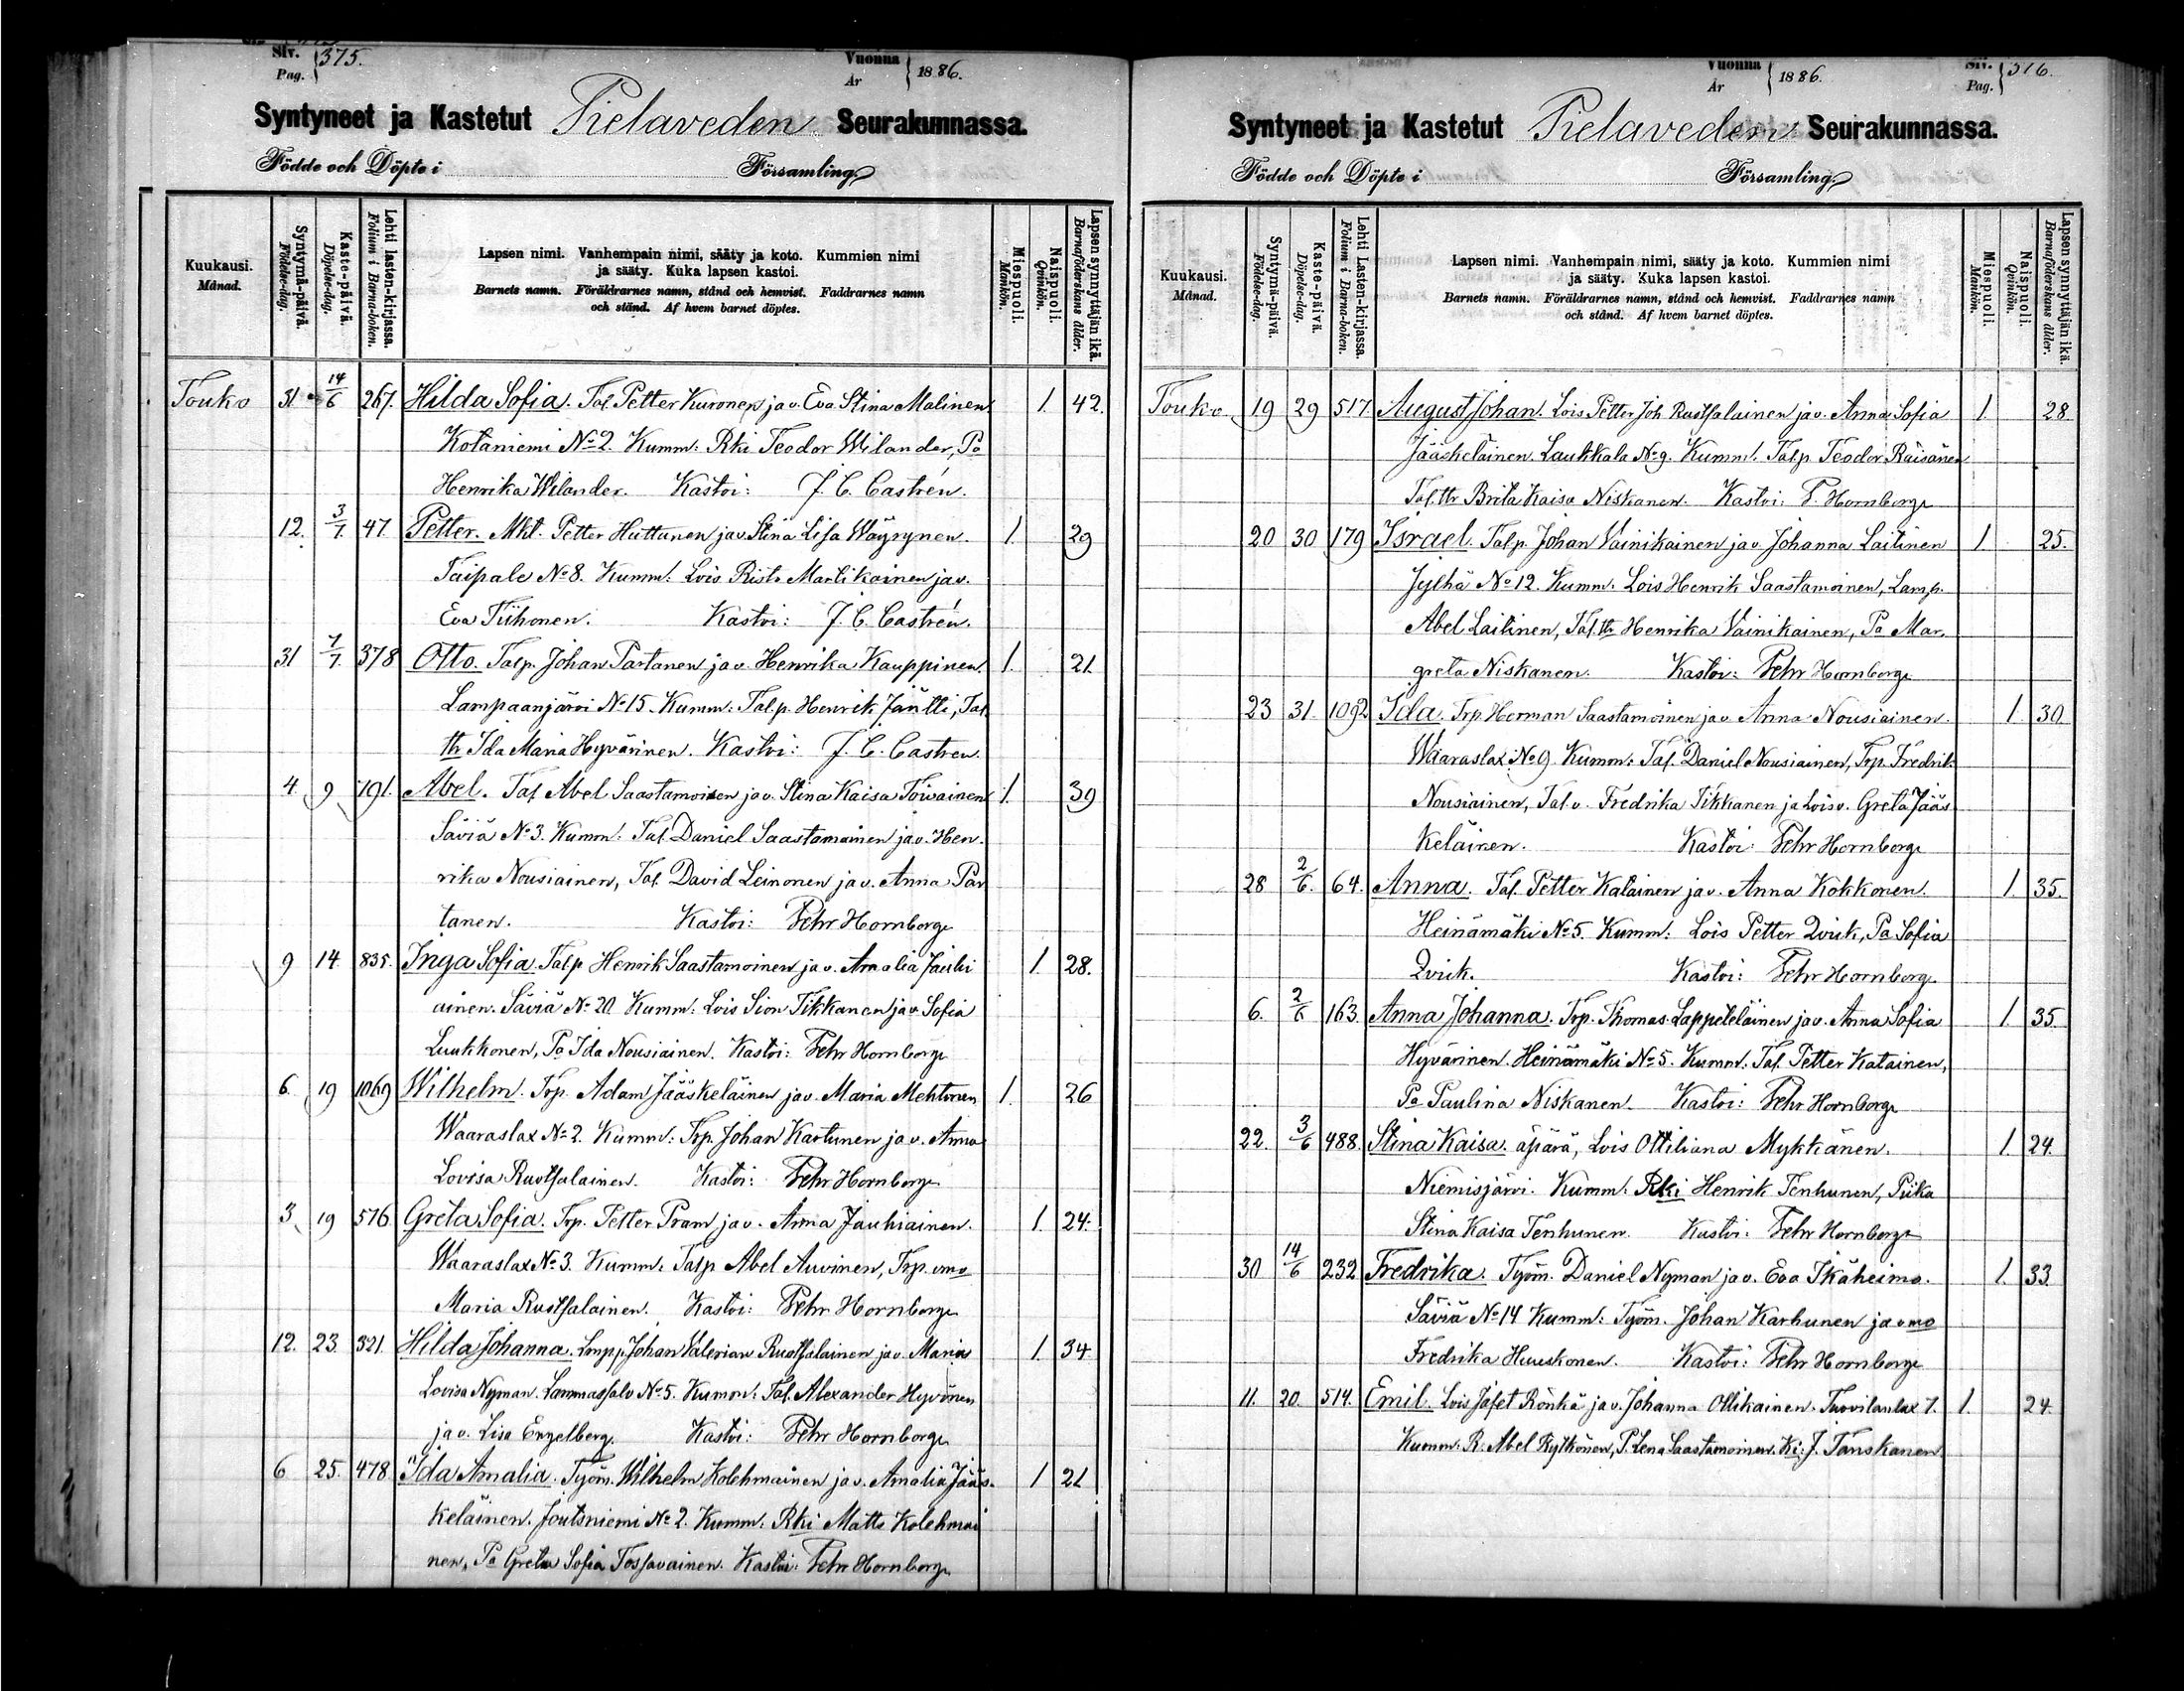 Siv. Pag. 375. Vuonna År 1886.
Syntyneet ja Kastetut Pielaveden Seurakunnassa.
Födde och Döpte i Församling
Kuukausi. Månad.
Syntymä-päivä. Födelse-dag.
Kaste-päivä. Döpelse-dag.
Lehti lasten-kirjassa. Folium i Barna-boken.
Lapsen nimi. Vanhempain nimi, sääty ja koto. Kummien nimi
ja sääty. Kuka lapsen kastoi.
Barnets namn. Föräldrarnes namn, stånd och hemvist. Faddrarnes namn
och stånd. Af hvem barnet döptes.
Miespuoli. Mankön.
Naispuoli. Qvinkön.
Lapsen synnyttäjän ikä. Barnaföderskans ålder.
Touko 31 14/6 267. Hilda Sofia. Tal. Petter Kuronen ja v. Eva Stina Malinen 1. 42.
Kotaniemi No 2. Kumm: Rki Teodor Wilander, Pa
Henrika Wilander. Kastoi: J. C. Castrén.
12. 3/7. 47. Petter. Mkt. Petter Huttunen ja v. Stina Lisa Wäyrynen. 1. 29
Taipale No 8. Kumm: Lois Risto Martikainen ja v.
Eva Tiihonen. Kastoi: J. C. Castrén.
31 7/7. 378 Otto. Talp. Johan Partanen ja v. Henrika Kauppinen. 1. 21.
Lampaanjärvi No 15. Kumm: Talp. Henrik Jäntti, Tal.
tr Ida Maria Hyvärinen. Kastoi: J. C. Castren.
4. 9 791. Abel. Tal. Abel Saastamoinen ja v. Stina Kaisa Toivainen 1. 39
Säviä No 3. Kumm: Tal. Daniel Saastamoinen ja v. Hen-
rika Nousiainen, Tal. David Leinonen ja v. Anna Par
tanen. Kastoi: Pehr Hornborg
9 14. 835. Inga Sofia. Talp Henrik Saastamoinen ja v. Amalia Jauhi 1. 28.
ainen. Säviä No 20. Kumm: Lois Sion Tikkanen ja v. Sofia
Luukkonen, Pa Ida Nousiainen. Kastoi: Pehr Hornborg
6. 19 1069 Wilhelm. Trp. Adam Jääskeläinen ja v. Maria Mehtonen 1. 26
Waaraslax No 2. Kumm: Trp. Johan Kartunen ja v. Anna
Lovisa Ruotsalainen. Kastoi: Pehr Hornborg
3 19 576. Greta Sofia. Trp. Petter Pram ja v. Anna Jauhiainen. 1. 24.
Waaraslax No 3. Kumm: Talp Abel Auvinen, Trp. vmo
Maria Ruotsalainen. Kastoi: Pehr Hornborg
12. 23. 321. Hilda Johanna. Lmpp. Johan Valerian Ruotsalainen ja v. Maria 1. 34
Lovisa Nyman. Lammassalo No 5. Kumm: Tal. Alexander Hyvönen
ja v. Lisa Engelberg. Kastoi: Pehr Hornborg
6 25. 478. Ida Amalia. Työm. Wilhelm Kolehmainen ja v. Amalia Jääs- 1 21
keläinen. Joutsniemi No 2. Kumm: Rki Matts Kolehmai
nen, Pa Greta Sofia Tossavainen. Kastoi: Pehr Hornborg
Vuonna År 1886. Siv. Pag. 376.
Syntyneet ja Kastetut Pielaveden Seurakunnassa.
Födde och Döpte i Församling
Kuukausi. Månad.
Syntymä-päivä. Födelse-dag.
Kaste-päivä. Döpelse-dag.
Lehti Lasten-kirjassa. Folium i Barna-boken.
Lapsen nimi. Vanhempain nimi, sääty ja koto. Kummien nimi
ja sääty. Kuka lapsen kastoi.
Barnets namn. Föräldrarnes namn, stånd och hemvist. Faddrarnes namn
och stånd. Af hvem barnet döptes.
Miespuoli. Mankön.
Naispuoli. Qvinkön.
Lapsen synnyttäjän ikä. Barnaföderskans ålder.
Touko 19 29 517. August Johan. Lois Petter Joh Ruotsalainen ja v. Anna Sofia 1. 28
Jääskeläinen. Laukkala No 9. Kumm: Talp. Teodor Räisänen
Tal. tr Brita Kaisa Niskanen. Kastoi: P. Hornborg
20 30 179 Israel. Talp. Johan Vainikainen ja v. Johanna Laitinen 1. 25.
Jylhä No 12. Kumm: Lois Henrik Saastamoinen, Lamp.
Abel Laitinen, Tal. tr Henrika Vainikainen, Pa Mar.
greta Niskanen. Kastoi: Pehr Hornborg
23 31. 1092 Ida. Trp. Herman Saastamoinen ja v. Anna Nousiainen. 1. 30
Waaraslax No 9. Kumm: Tal. Daniel Nousiainen, Trp. Fredrik
Nousiainen, Tal. v. Fredrika Tikkanen ja Lois v. Greta Jääs
keläinen. Kastoi: Pehr Hornborg
28 2/6. 64. Anna. Tal. Petter Katainen ja v. Anna Kokkonen. 1. 35.
Heinämäki No 5. Kumm: Lois Petter Qvick, Pa Sofia
Qvick. Kastoi: Pehr Hornborg.
6. 2/6 163. Anna Johanna. Trp. Thomas Lappeteläinen ja v. Anna Sofia 1. 35.
Hyvärinen. Heinämäki No 5. Kumm: Tal. Petter Katainen,
Pa Paulina Niskanen. Kastoi: Pehr Hornborg
22. 3/6 488. Stina Kaisa. äpärä, Lois Ottiliana Mykkänen. 1. 24.
Niemisjärvi. Kumm: Rki Henrik Tenhunen, Piika
Stina Kaisa Tenhunen. Kastoi: Pehr Hornborg
30 14/6 232 Fredrika. Työm. Daniel Nyman ja v. Eva Ikäheimo. 1. 33.
Säviä No 14 Kumm: Työm. Johan Karhunen ja vmo
Fredrika Huuskonen. Kastoi: Pehr Hornborg
11. 20. 514. Emil. Lois Jafet Rönkä ja v. Johanna Ollikainen. Tuovilanlax 7. 1. 24.
Kumm: R. Abel Kytkönen, P. Lena Saastamoinen. Ki: J. Tanskanen